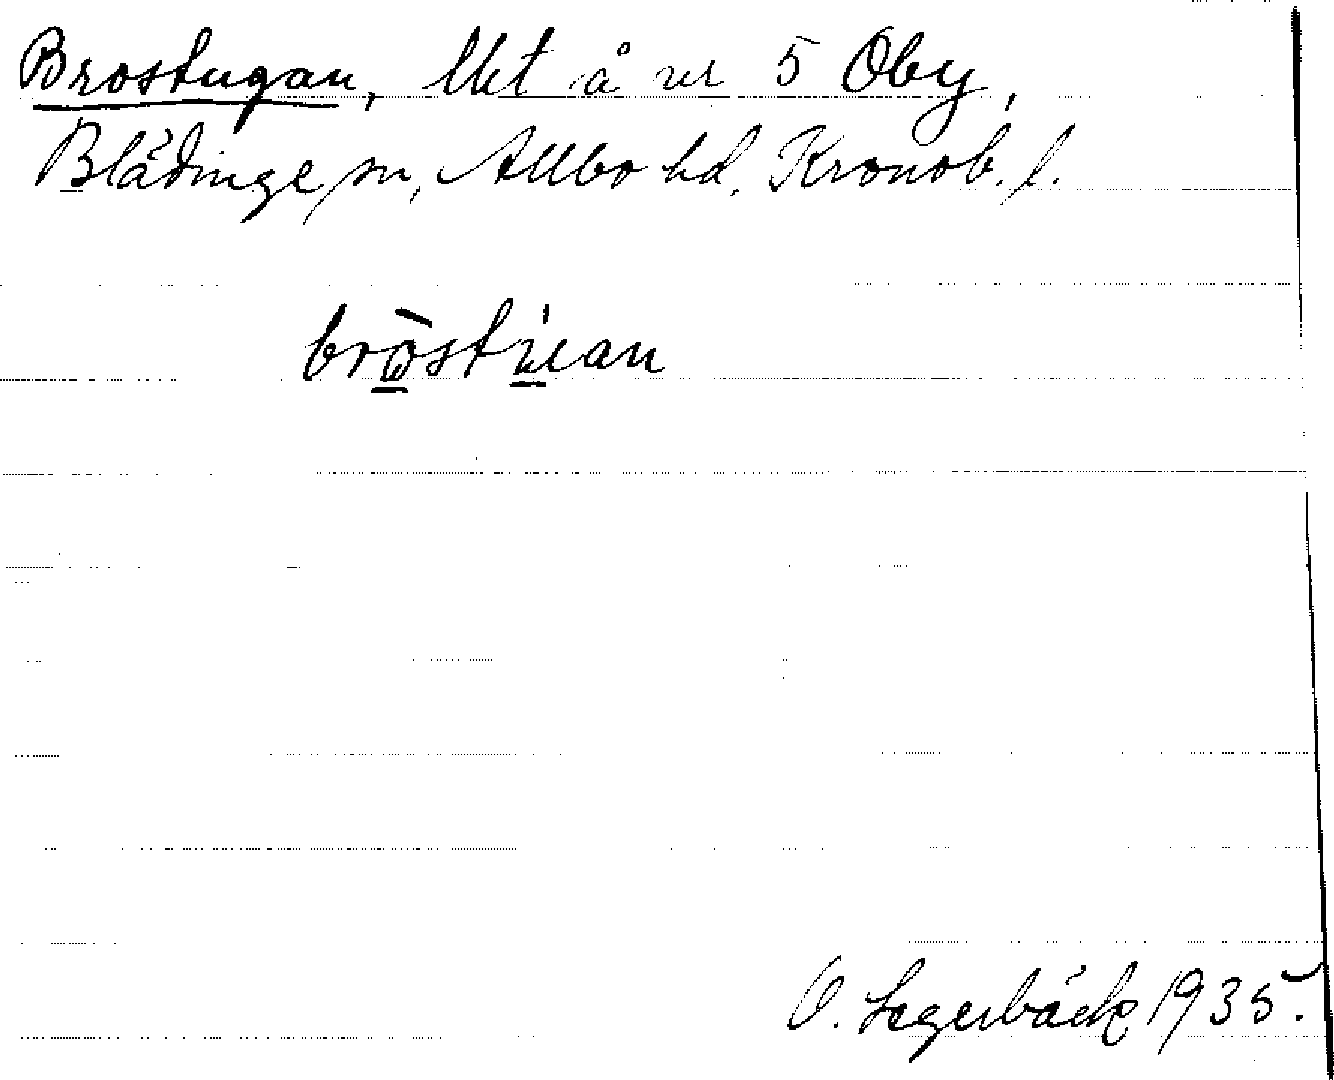 Brostugan, lht å nr 5 Oby,
Blädinge sn, Allbo hd. Kronob. l.
bròstúan
O. Legerbäck 1935.